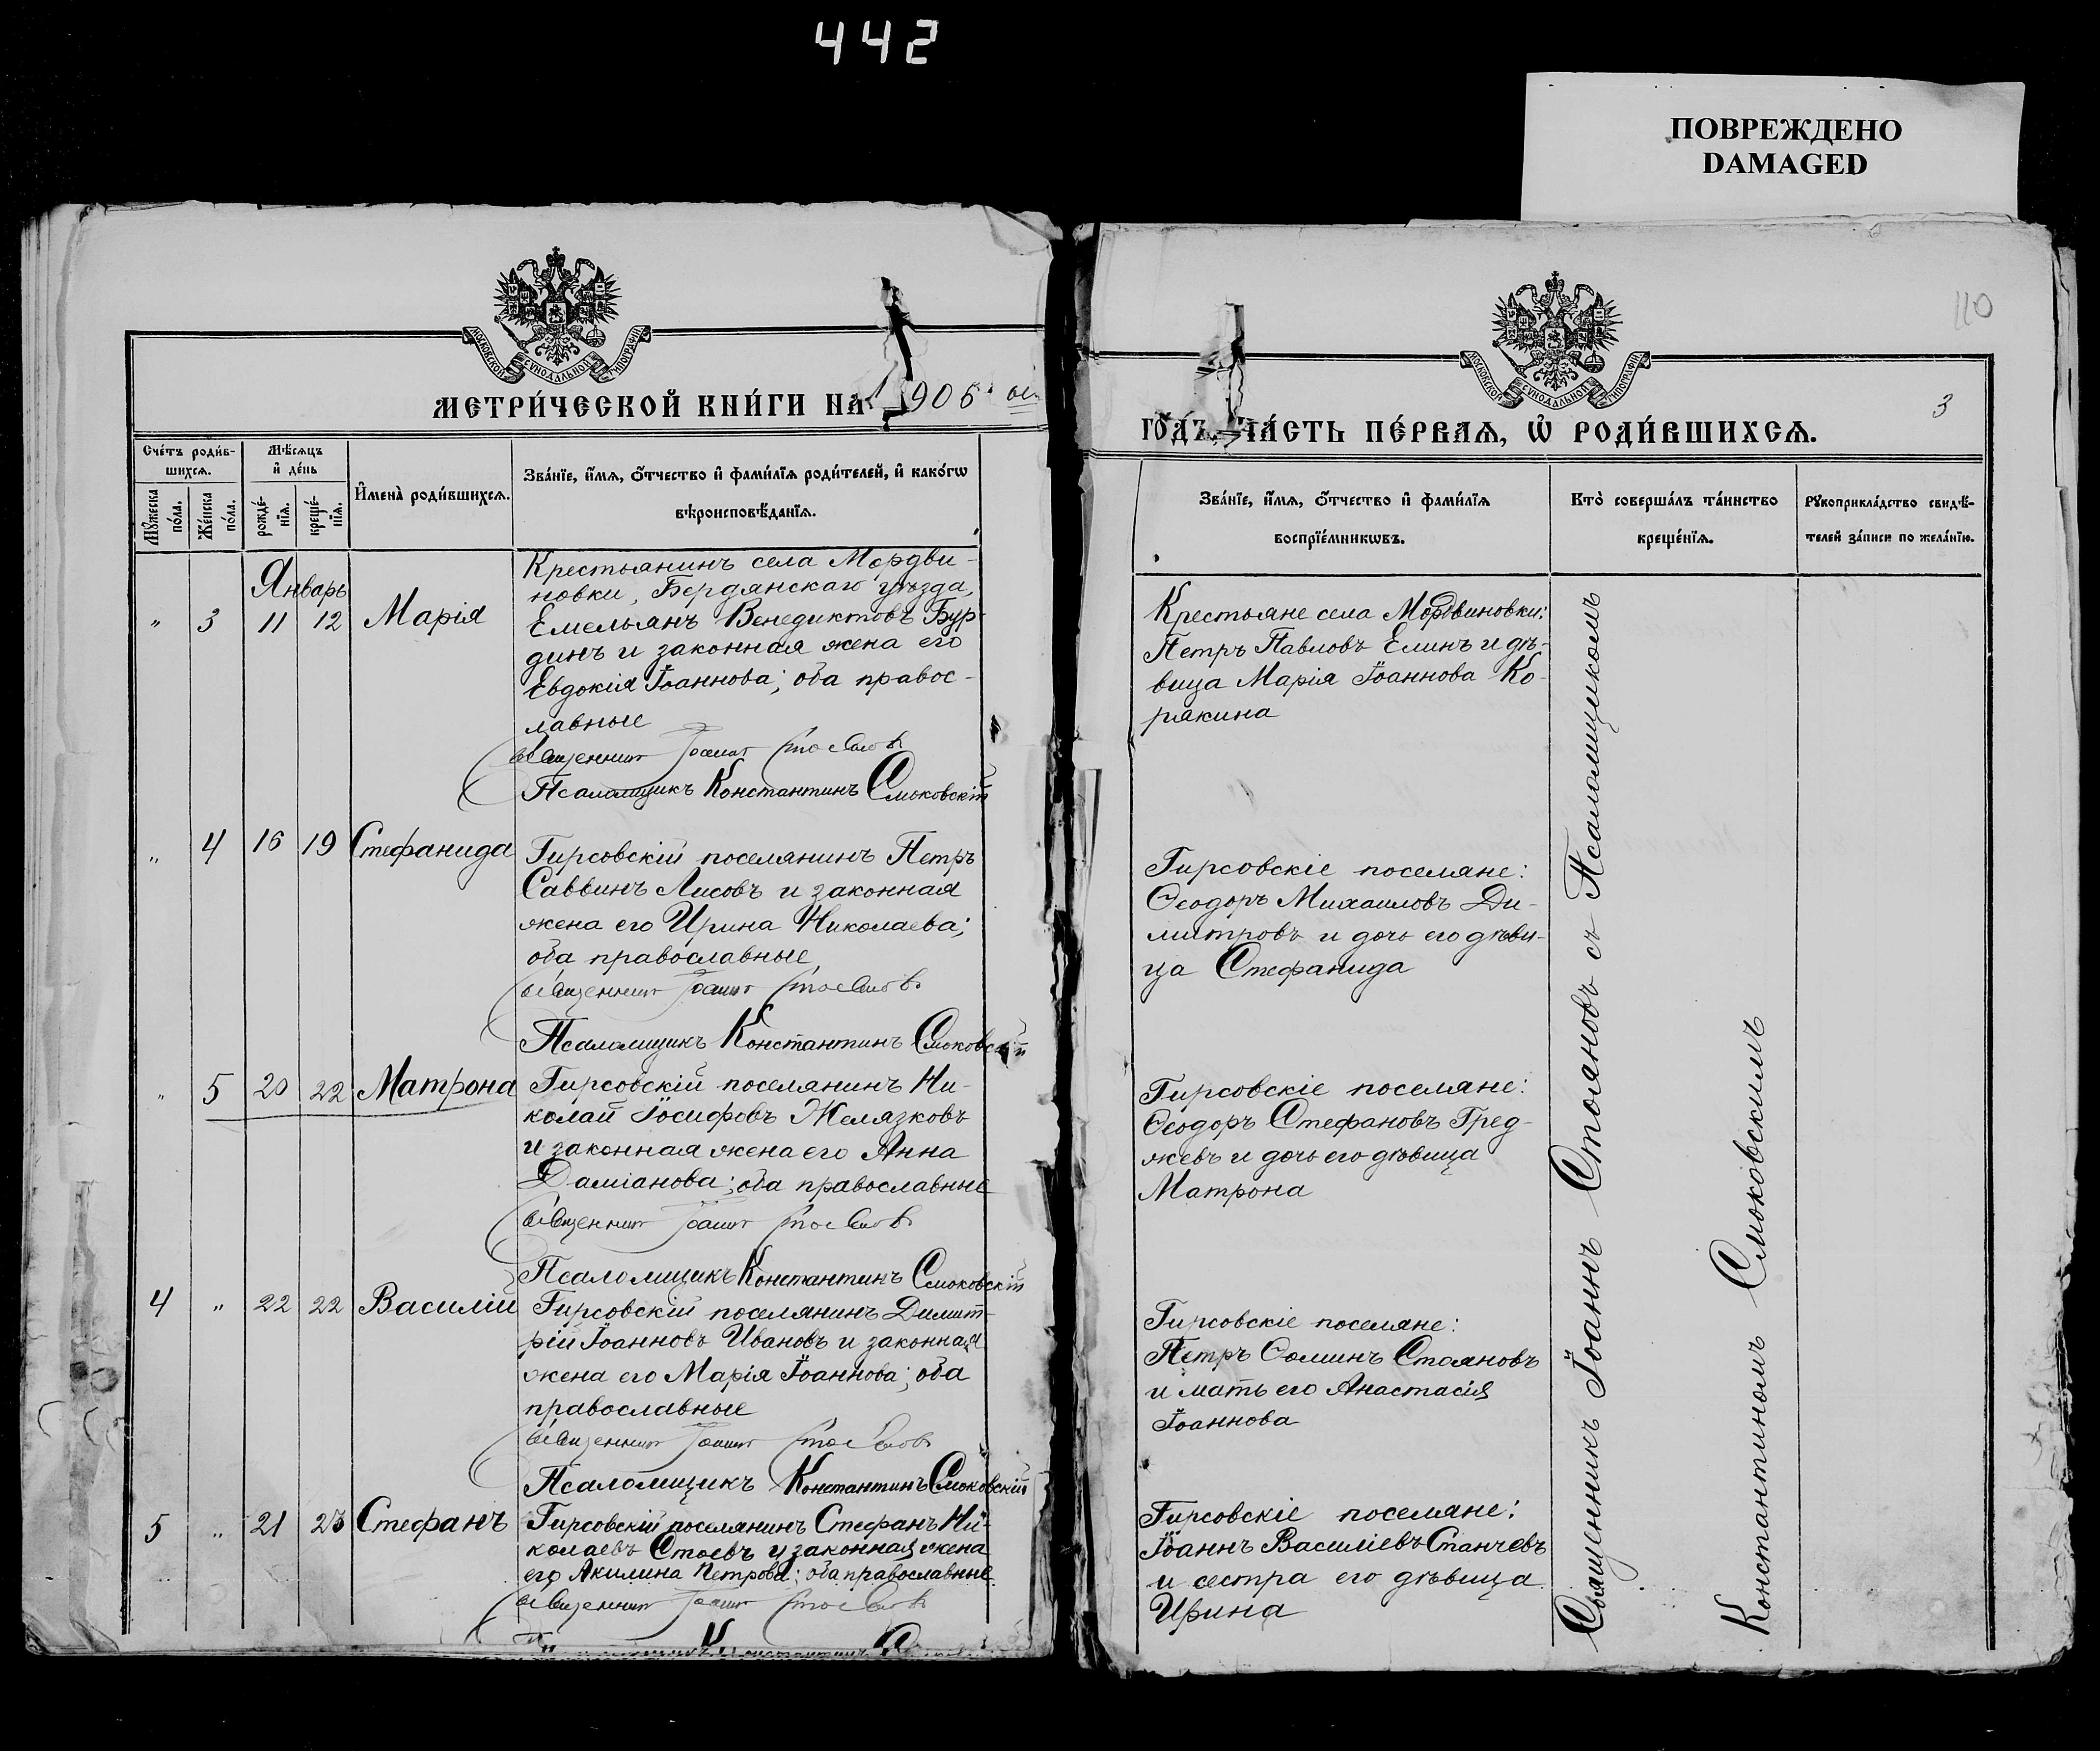 442
ПОВРЕЖДЕНО
DAMAGED
110
МОСКОВСКОЙ СѴНОДАЛЬНОЙ ТИПОГРАФІИ
МЕТРИ́ЧЕСКОЙ КНИ́ГИ НА 1906 ой
Сче́тъ роди́в-
шихсѧ.
Мѣ́сѧцъ
и҆ де́нь
И҆мена̀ роди́вшихсѧ.
Зва́нїе, и҆́мѧ, ѻ҆́тчество и҆ фами́лїѧ роди́телей, и҆ како́гѡ
вѣроисповѣ́данїѧ.
Мꙋ́жеска
по́ла.
Же́нска
по́ла.
рожде́-
нїѧ.
креще́-
нїѧ.
Январь
„ 3 11 12 Марія
Крестьянинъ села Мордви-
новки, Бердянскаго уѣзда,
Емельянъ Венедиктовъ Бур-
динъ и законная жена его
Евдокія Іоаннова; оба правос-
лавные
Священникъ Іоаннъ Стояновъ
Псаломщикъ Константинъ Смоковскій
„ 4 16 19 Стефанида
Гирсовскій поселянинъ Петръ
Саввинъ Лисовъ и законная
жена его Ирина Николаева;
оба православные
Священникъ Іоаннъ Стояновъ
Псаломщикъ Константинъ Смоковскій
„ 5 20 22 Матрона
Гирсовскій поселянинъ Ни-
колай Іосифовъ Желязковъ
и законная жена его Анна
Даміанова; оба православные
Священникъ Іоаннъ Стояновъ
Псаломщикъ Константинъ Смоковскій
4 „ 22 22 Василій
Гирсовскій поселянинъ Димит-
рій Іоанновъ Ивановъ и законная
жена его Марія Іоаннова; оба
православные
Священникъ Іоаннъ Стояновъ
Псаломщикъ Константинъ Смоковскій
5 „ 21 23 Стефанъ
Гирсовскій поселянинъ Стефанъ Ни-
колаевъ Стоевъ и законная жена
его Акилина Петрова; оба православные
Священникъ Іоаннъ Стояновъ
МОСКОВСКОЙ СѴНОДАЛЬНОЙ ТИПОГРАФІИ
3
ГО́ДЪ, ЧА́СТЬ ПЕ́РВАѦ, Ѡ҆ РОДИ́ВШИХСѦ.
Зва́нїе, и҆́мѧ, ѻ҆́тчество и҆ фами́лїѧ
воспрїе́мникѡвъ.
Кто̀ соверша́лъ та́инство
креще́нїѧ.
Рꙋкоприкла́дство свидѣ́-
телей за́писи по жела́нїю.
Крестьяне села Мордвиновки:
Петръ Павловъ Елинъ и дѣ-
вица Марія Іоаннова Ко-
рякина
Гирсовскіе поселяне:
Ѳеодоръ Михаиловъ Ди-
митровъ и дочь его дѣви-
ца Стефанида
Гирсовскіе поселяне:
Ѳеодоръ Стефановъ Гред-
жевъ и дочь его дѣвица
Матрона
Гирсовскіе поселяне:
Петръ Ѳоминъ Стояновъ
и мать его Анастасія
Іоаннова
Гирсовскіе поселяне:
Іоаннъ Василіевъ Станчевъ
и сестра его дѣвица
Ирина
Священникъ Іоаннъ Стояновъ съ Псаломщикомъ
Константиномъ Смоковскимъ